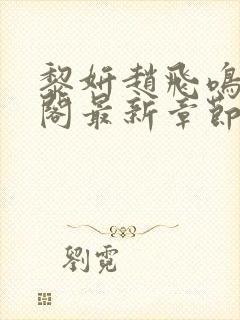 黎妍趙飛鳴
閣最新章節
劉霓